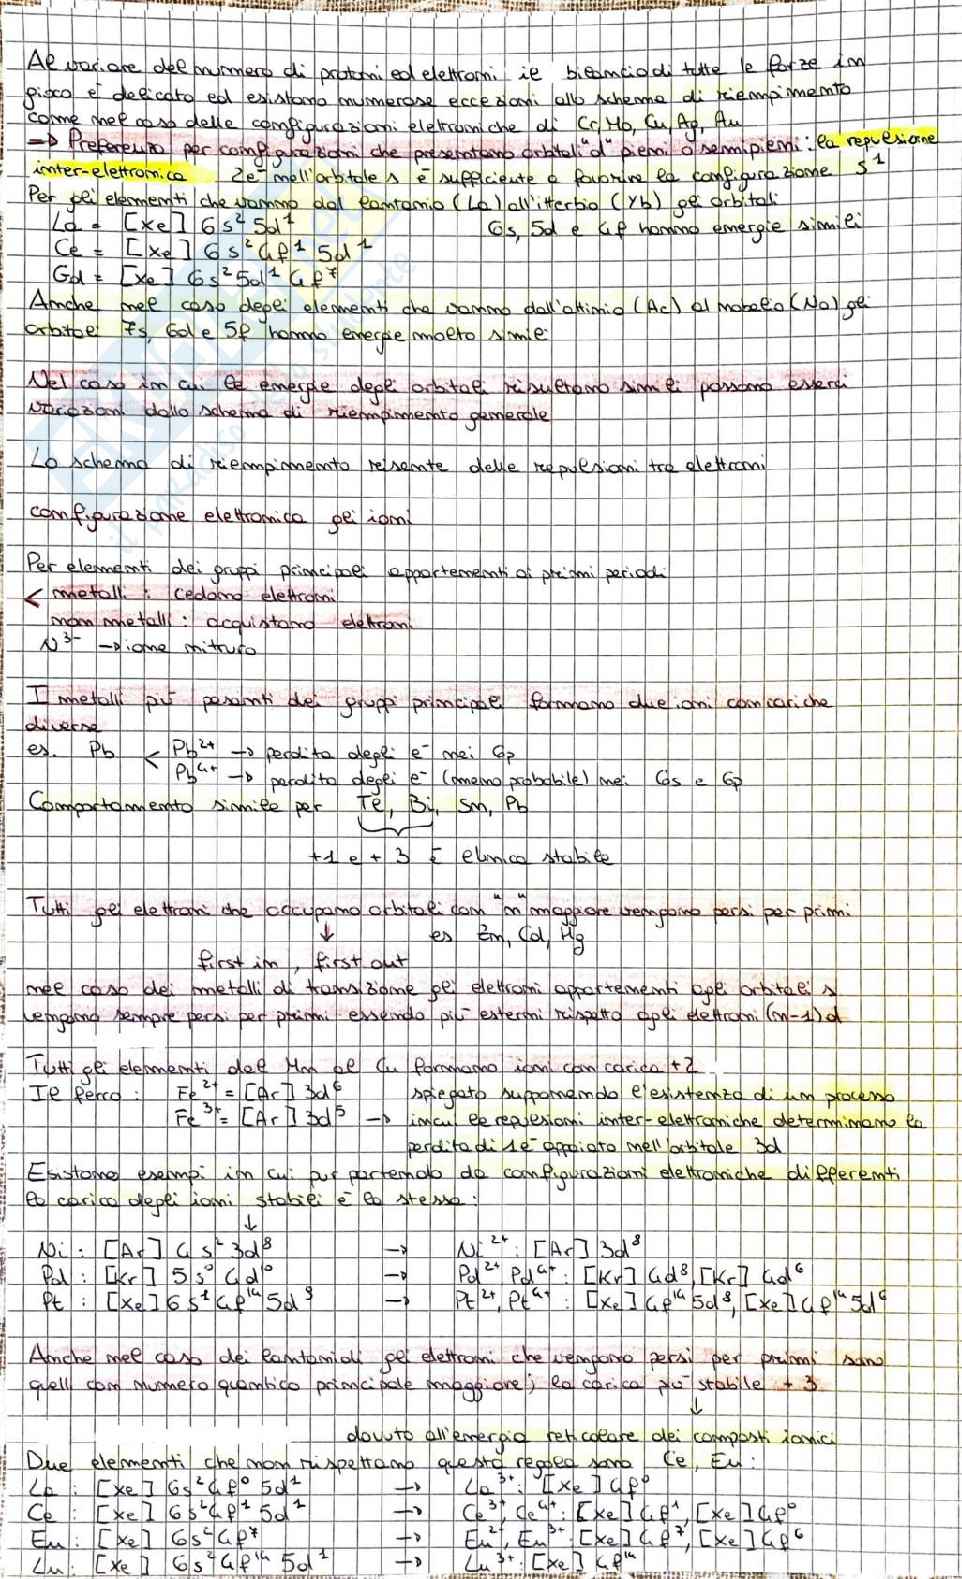 Al variare del numero di protoni ed elettroni il bilancio di tutte le forze in
gioco è delicato ed esistono numerose eccezioni allo schema di riempimento
come nel caso delle configurazioni elettroniche di Cr, Mo, Cu, Ag, Au
→ Preferenza per configurazioni che presentano orbitali "d" pieni o semipieni: la repulsione
inter-elettronica 2e⁻ nell'orbitale s è sufficiente a favorire la configurazione s¹
Per gli elementi che vanno dal lantanio (La) all'itterbio (Yb) gli orbitali
La = [Xe] 6s² 5d¹ 6s, 5d e 4f hanno energie simili
Ce = [Xe] 6s² 4f¹ 5d¹
Gd = [Xe] 6s² 5d¹ 4f⁷
Anche nel caso degli elementi che vanno dall'attinio (Ac) al nobelio (No) gli
orbitali 7s, 6d e 5f hanno energie molto simili
Nel caso in cui le energie degli orbitali risultano simili possono esserci
variazioni dallo schema di riempimento generale
Lo schema di riempimento risente delle repulsioni tra elettroni
configurazione elettronica gli ioni
Per elementi dei gruppi principali appartenenti ai primi periodi
< metalli: cedono elettroni
non metalli: acquistano elettroni
N³⁻ → ione nitruro
I metalli più pesanti dei gruppi principali formano due ioni con cariche
diverse
es. Pb < Pb²⁺ → perdita degli e⁻ nei 6p
Pb⁴⁺ → perdita degli e⁻ (meno probabile) nei 6s e 6p
Comportamento simile per Te, Bi, Sn, Pb
+1 e +3 È chimica stabile
Tutti gli elettroni che occupano orbitali con "n" maggiore vengono persi per primi
↓ es Zn, Cd, Hg
first in, first out
nel caso dei metalli di transizione gli elettroni appartenenti agli orbitali s
vengono sempre persi per primi essendo più esterni rispetto agli elettroni (n-1)d
Tutti gli elementi dal Mn al Cu formano ioni con carica +2
Il ferro: Fe²⁺ = [Ar] 3d⁶ spiegato supponendo l'esistenza di un processo
Fe³⁺ = [Ar] 3d⁵ → in cui le repulsioni inter-elettroniche determinano la
perdita di 1e⁻ appaiato nell'orbitale 3d
Esistono esempi in cui pur partendo da configurazioni elettroniche differenti
la carica degli ioni stabili è la stessa:
↓
Ni: [Ar] 4s² 3d⁸ → Ni²⁺: [Ar] 3d⁸
Pd: [Kr] 5s⁰ 4d¹⁰ → Pd²⁺ Pd⁴⁺: [Kr] 4d⁸, [Kr] 4d⁶
Pt: [Xe] 6s¹ 4f¹⁴ 5d⁹ → Pt²⁺, Pt⁴⁺: [Xe] 4f¹⁴ 5d⁸, [Xe] 4f¹⁴ 5d⁶
Anche nel caso dei lantanidi gli elettroni che vengono persi per primi sono
quelli con numero quantico principale maggiore; la carica più stabile +3
↓
dovuto all'energia reticolare dei composti ionici
Due elementi che non rispettano questa regola sono Ce, Eu:
La: [Xe] 6s² 4f⁰ 5d¹ → La³⁺: [Xe] 4f⁰
Ce: [Xe] 6s² 4f¹ 5d¹ → Ce³⁺, Ce⁴⁺: [Xe] 4f¹, [Xe] 4f⁰
Eu: [Xe] 6s² 4f⁷ → Eu²⁺, Eu³⁺: [Xe] 4f⁷, [Xe] 4f⁶
Lu: [Xe] 6s² 4f¹⁴ 5d¹ → Lu³⁺: [Xe] 4f¹⁴